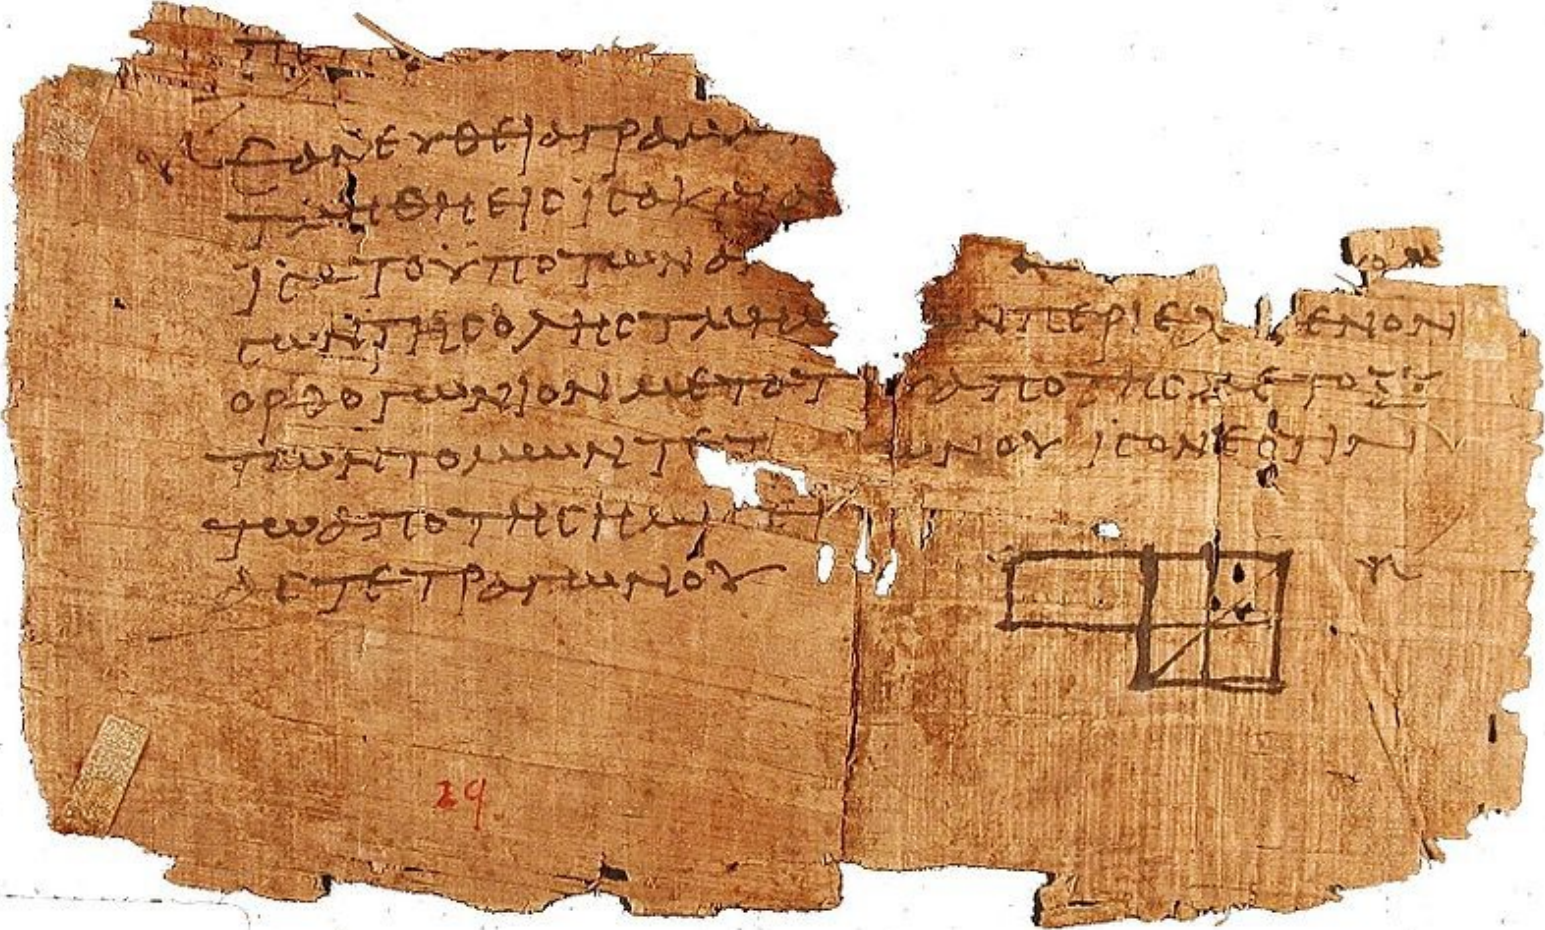 ε̄ ΕΑΝ ΕΥΘΕΙΑ ΓΡΑΜΜ
ΤΜΗΘΗ ΕΙϹ ΙϹΑ ΚΑΙ Α
ΙϹΑ ΤΟ ΥΠΟ ΤΩΝ ΑΝ
ϹΩΝ ΤΗϹ ΟΛΗϹ ΤΜΗΜ ΩΝ ΠΕΡΙΕΧ ΕΝΟΝ
ΟΡΘΟΓΩΝΙΟΝ ΜΕΤΑ ΤΟΥ ΑΠΟ ΤΗϹ ΜΕΤΑΞΥ
ΤΩΝ ΤΟΜΩΝ ΤΕΤ ΩΝΟΥ ΙϹΟΝ ΕϹΤΙΝ
ΤΩ ΑΠΟ ΤΗϹ ΗΜΙϹΕΙ
ΑϹ ΤΕΤΡΑΓΩΝΟΥ
29